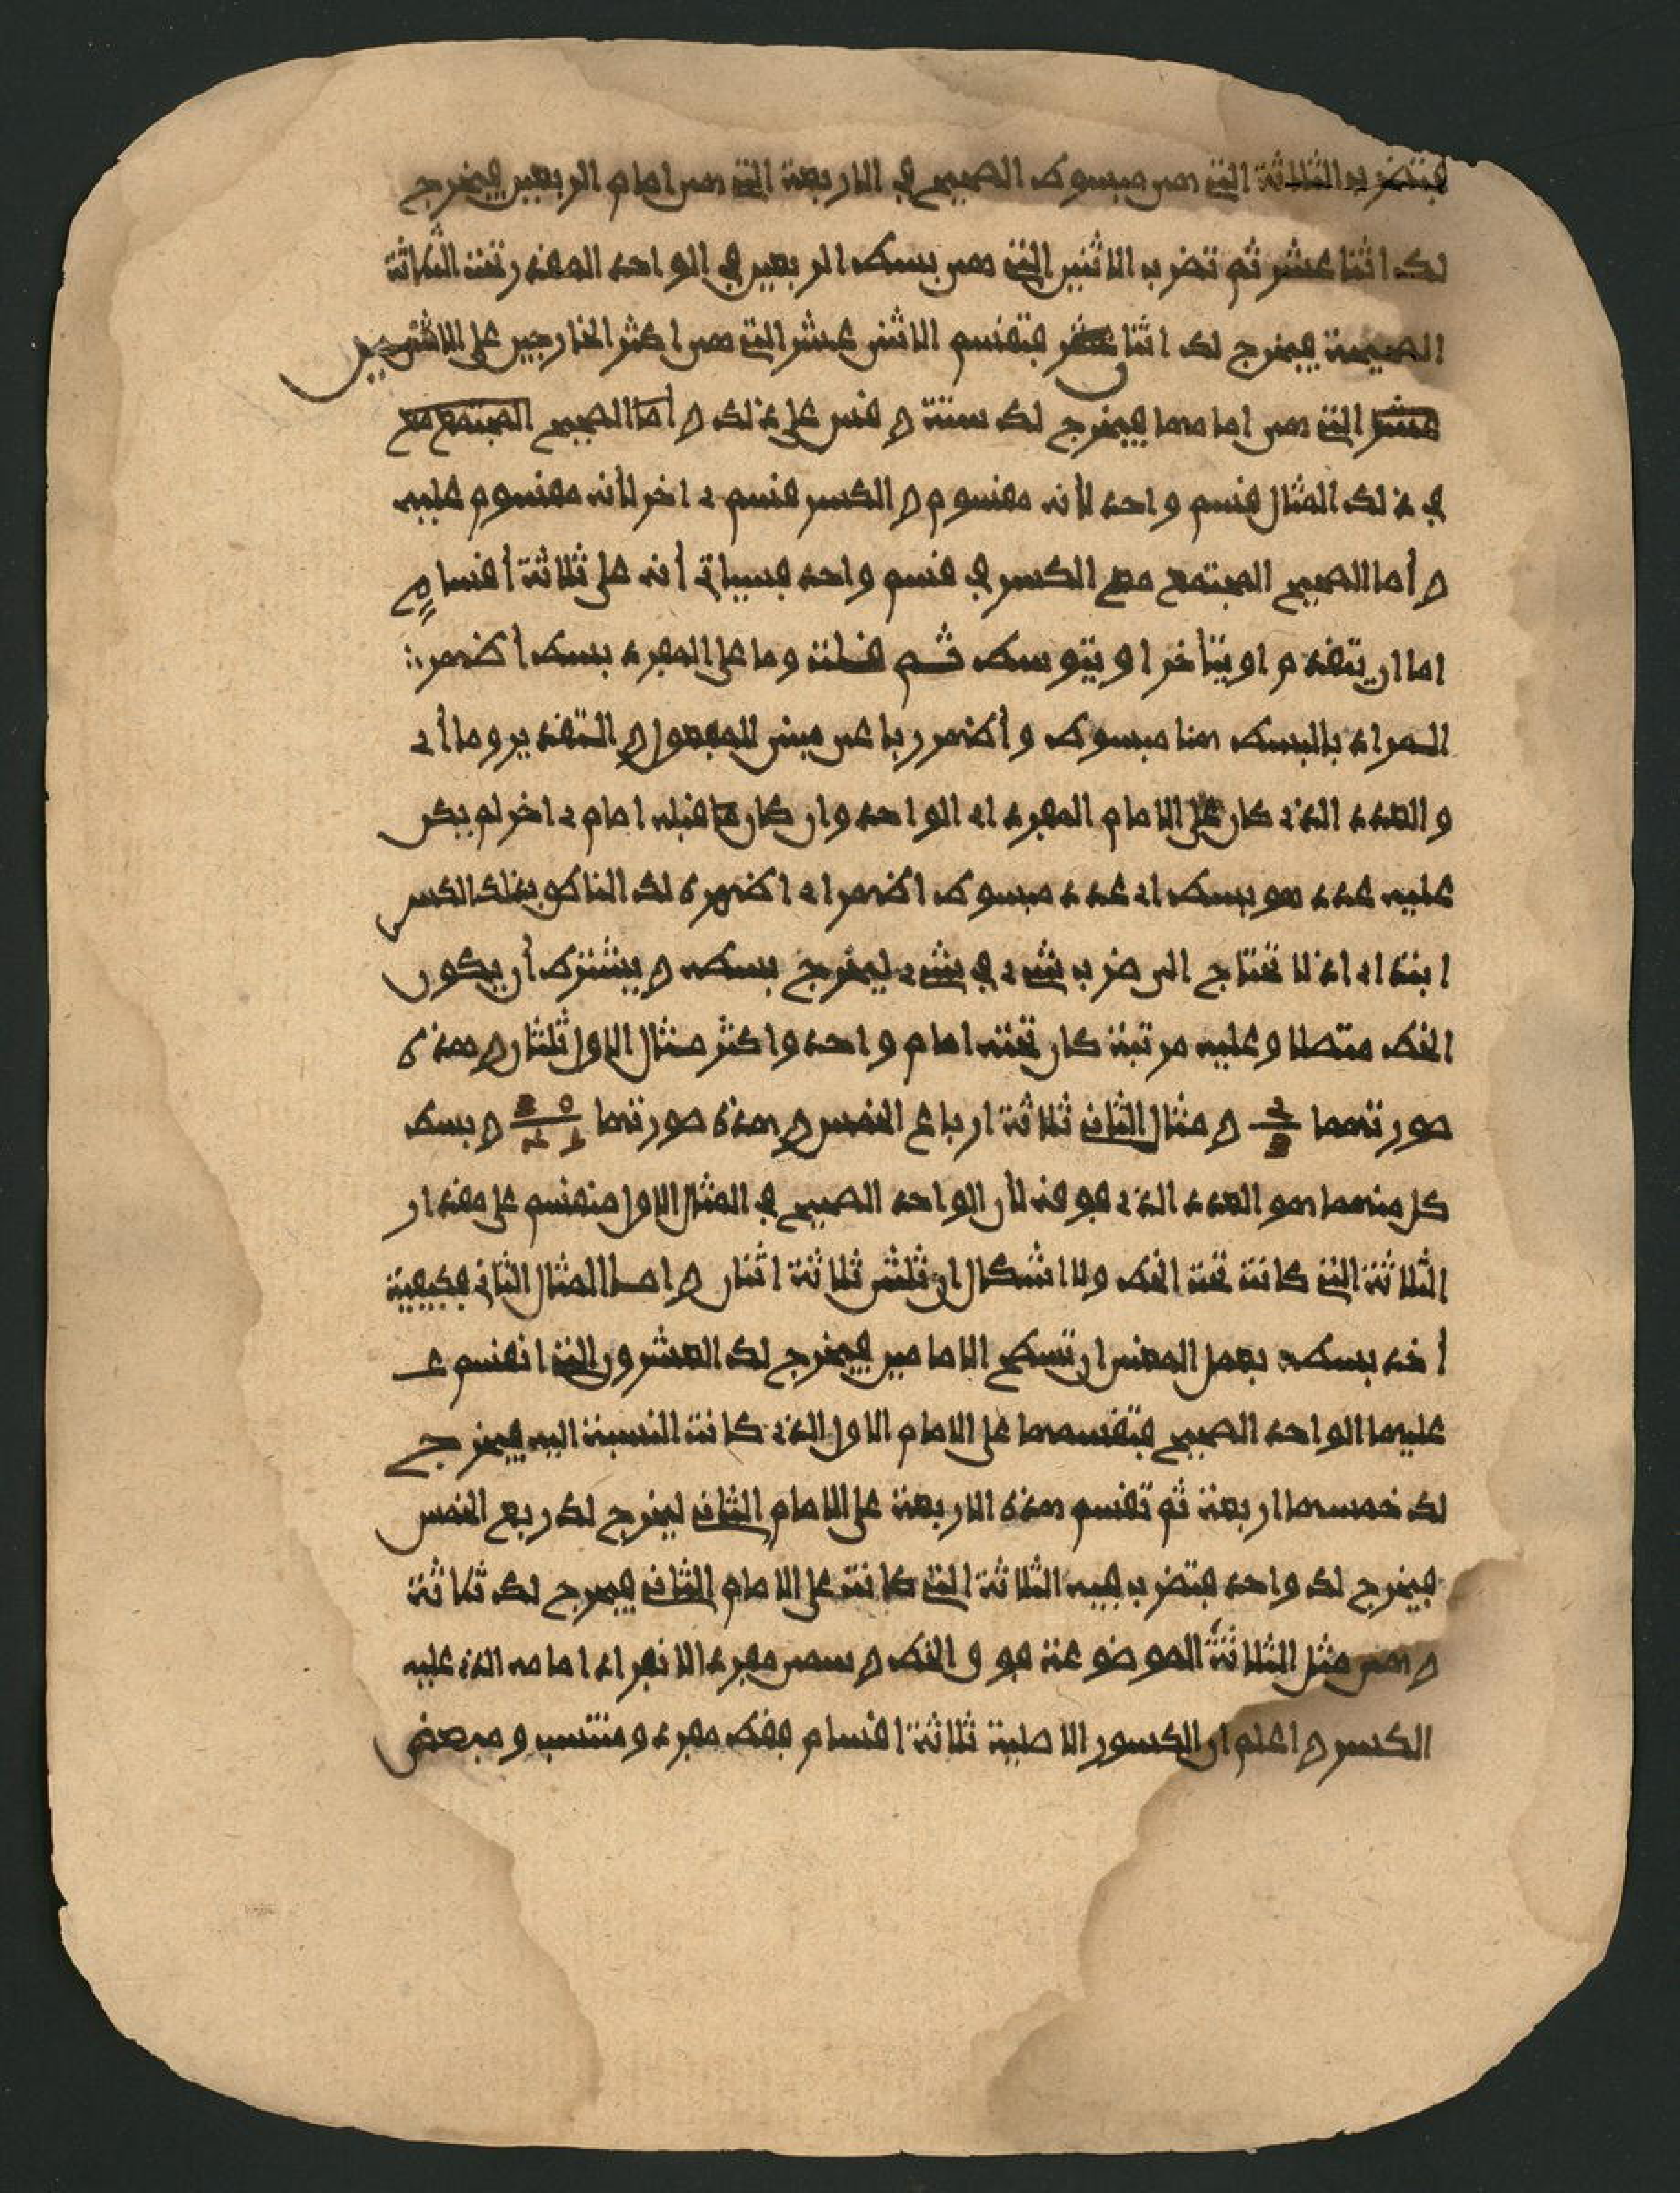 فتضرب الثلاثة التي هي مبسوط الصحيح في الاربعة التي هي امام الربعين فيخرج
لك اثنا عشر ثم تضرب الاثنين التي هي بسط الربعين في الواحد المقدر تحت الثلاثة
الصحيحة فيخرج لك اثنا عشر فتقسم الاثني عشر التي هي اكثر الخارجين على الاثنين
عشر التي هي امامها فيخرج لك ستة وقس على ذلك وأما الصحيح المجتمع مع
في ذلك المثال قسم واحد لأنه مقسوم والكسر قسم ءاخر لأنه مقسوم عليه
وأما الصحيح المجتمع مع الكسر في قسم واحد فسياتي أنه على ثلاثة أقسام
اما ان يتقدم او يتأخر او يتوسط ثم قلت وما على المفرد بسط أظهر
المراد بالبسط هنا مبسوط وأظهر رباعي مبني للمفعول والتقدير وما أي
والعدد الذي كان على الامام المفرد اي الواحد وان كان ما قبله امام ءاخر لم يكن
عليه عدد هو بسط اي عدد مبسوط اظهر اي اظهره لك الناطق بذلك الكسر
ابتداء اذ لا تحتاج الى ضرب شيء في شيء ليخرج بسطه ويشترط أن يكون
الخط متصلا وعليه مرتبة كان تحته امام واحد واكثر مثال الاول ثلثان وهذه
صورتهما 2/3 ومثال الثاني ثلاثة ارباع الخمس وهذه صورتها 0 3/5 4 وبسط
كل منهما هو العدد الذي فوقه لأن الواحد الصحيح في المثال الاول منقسم على مقدار
الثلاثة التي كانت تحت الخط ولا اشكال ان ثلثي ثلاثة اثنان واما المثال الثاني فكيفية
أخذ بسطه بعمل المعنى ان تسطح الامامين فيخرج لك العشرون التي انقسم عـ
عليها الواحد الصحيح فتقسمها على الامام الاول الذي كانت النسبة اليه فيخرج
لك خمسها اربعة ثم تقسم هذه الاربعة على الامام الثاني ليخرج لك ربع الخمس
فيخرج لك واحد فتضرب فيه الثلاثة التي كانت على الامام الثاني فيخرج لك ثلاثة
وهي مثل الثلاثة الموضوعة فوق الخط وسمي مفردا لانفراد امامه الذي عليه
الكسر واعلم ان الكسور الاصلية ثلاثة اقسام فقط مفرد ومنتسب ومبعض